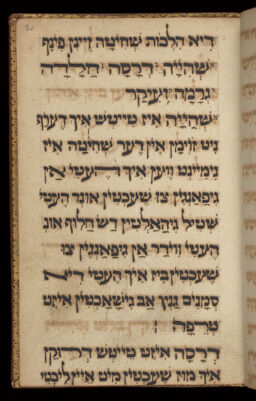 דיא הלכות שחיטה זיינין פינף
שהייה דרסה חלדה
גרמה ועיקר
שהייה איז טייטש איך דערף
ניט זוימן אין דער שחיטה איז
גימיינט ווען איך העטי אן
גיפאנגין צו שעכטין אונד העטי
שטיל גיהאלטין דש חלוף אונ
העטי ווידר אן גיפאנגין צו
שעכטין ביז איך העטי דיא
סמנים גנץ אב גישאכטין איזט
טרפה
דרסה איזט טייטש דרוקן
איך מוז שעכטין מיט איין ליכטי